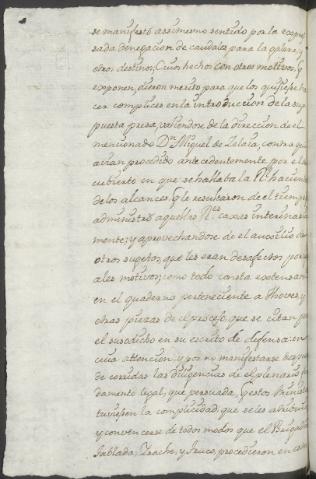 se manifestó assimesmo sentido por la expre
sada denegacion de caudales para la galera, y
otros destinos; Cuios hechos con otros motivos, q.
exponen, dieron merito para que los quisiesse ha
cer complices en la introduccion de la sup
puesta presa, valiendose de la direccion de el
mencionado Dn. Miguel de Zelaia, contra q
avian procedido antecedentemente por el des
cubierto en que se hallaba la Rl. hacienda
de los alcances, q le resultaron de el tiempo
administró aquellas Rs. caxas interinaria
mente; y aprovechandose de el auxilio de
otros sugetos, que les eran desafectos por
ales motivos; como todo consta extensam
en el quaderno perteneciente a Thover, y
otras piezas de el processo, que se citan por
el susodicho en su escrito de defensa: en
cuia attencion, y por no manifestarse
de corridas las diligencias de el plenario, fun
damento legal, que persuada, q estos Minis
tuviessen la complicidad, que se les atribuie
y convencerse de todos modos que el
Tablada, y procedieron en